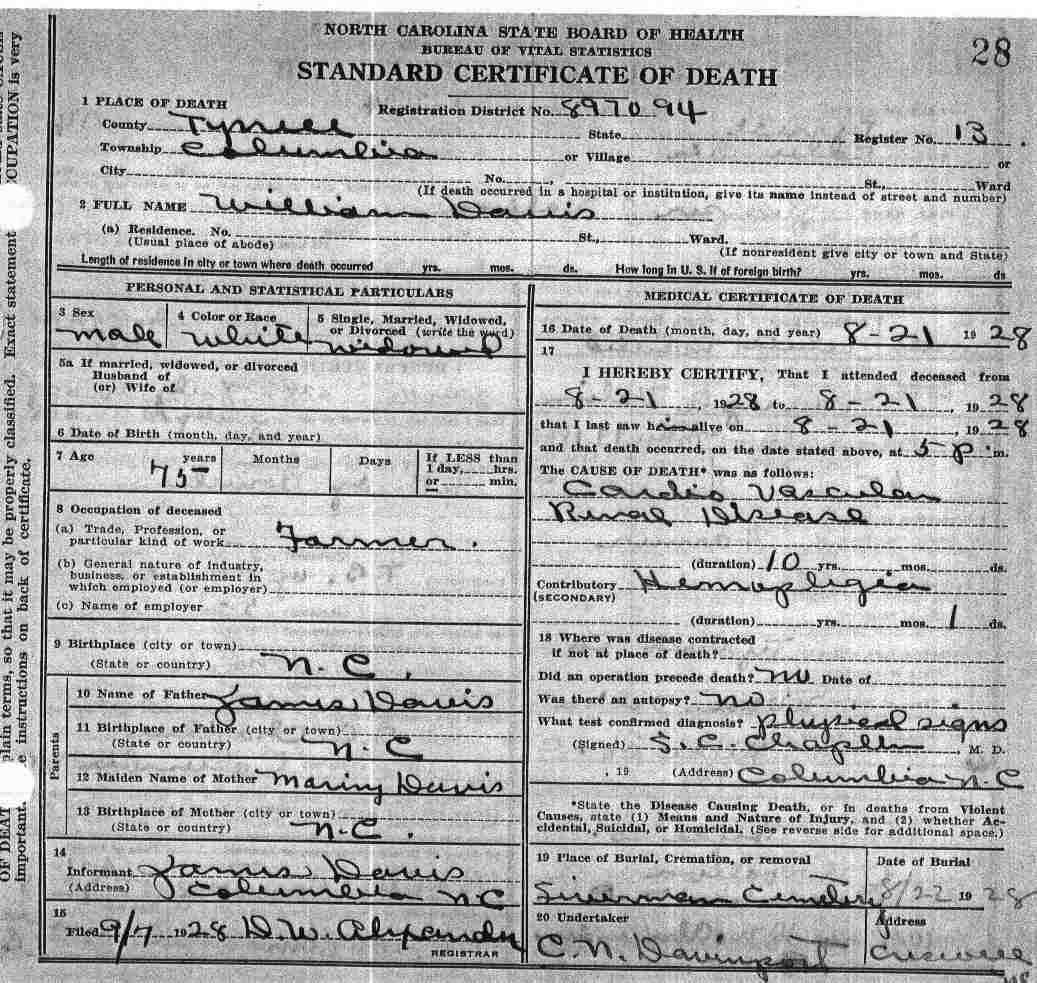 NORTH CAROLINA STATE BOARD OF HEALTH
BUREAU OF VITAL STATISTICS
28
STANDARD CERTIFICATE OF DEATH
1 PLACE OF DEATH
Registration District No. 8970 94
County Tyrrell State Register No. 13
Township Columbia or Village or
City No. , St., Ward
(If death occurred in a hospital or institution, give its name instead of street and number)
2 FULL NAME William Davis
(a) Residence. No. St., Ward.
(Usual place of abode) (If nonresident give city or town and State)
Length of residence in city or town where death occurred yrs. mos. ds. How long in U. S. if of foreign birth? yrs. mos. ds
PERSONAL AND STATISTICAL PARTICULARS
3 Sex 4 Color or Race 5 Single, Married, Widowed,
or Divorced (write the word)
male white widowed
5a If married, widowed, or divorced
Husband of
(or) Wife of
6 Date of Birth (month, day, and year)
7 Age years Months Days If LESS than
1 day, hrs.
75 or min.
8 Occupation of deceased
(a) Trade, Profession, or
particular kind of work Farmer.
(b) General nature of industry,
business, or establishment in
which employed (or employer)
(c) Name of employer
9 Birthplace (city or town)
(State or country) N. C.
Parents
10 Name of Father James Davis
11 Birthplace of Father (city or town)
(State or country) N. C
12 Maiden Name of Mother Davis
13 Birthplace of Mother (city or town)
(State or country) N. C.
14
Informant James Davis
(Address) Columbia N C
15
Filed 9/7 1928 D. W. Alexander
REGISTRAR
MEDICAL CERTIFICATE OF DEATH
16 Date of Death (month, day, and year) 8-21 1928
17
I HEREBY CERTIFY, That I attended deceased from
8-21, 1928 to 8-21, 1928
that I last saw him alive on 8-21, 1928
and that death occurred, on the date stated above, at 5 p. m.
The CAUSE OF DEATH* was as follows:
Cardio Vascular
Renal Disease
(duration) 10 yrs. mos. ds.
Contributory Hemoplegia
(SECONDARY)
(duration) yrs. mos. 1 ds.
18 Where was disease contracted
if not at place of death?
Did an operation precede death? no Date of
Was there an autopsy? no
What test confirmed diagnosis? physical signs
(Signed) S. C. Chaplin, M. D.
, 19 (Address) Columbia N. C
*State the Disease Causing Death, or in deaths from Violent
Causes, state (1) Means and Nature of Injury, and (2) whether Ac-
cidental, Suicidal, or Homicidal. (See reverse side for additional space.)
19 Place of Burial, Cremation, or removal Date of Burial
Cemetery 8/22 1928
20 Undertaker Address
C. N. Davenport Creswell
OCCUPATION is very
Exact statement
plain terms, so that it may be properly classified.
OF DEAT
instructions on back of certificate.
important.